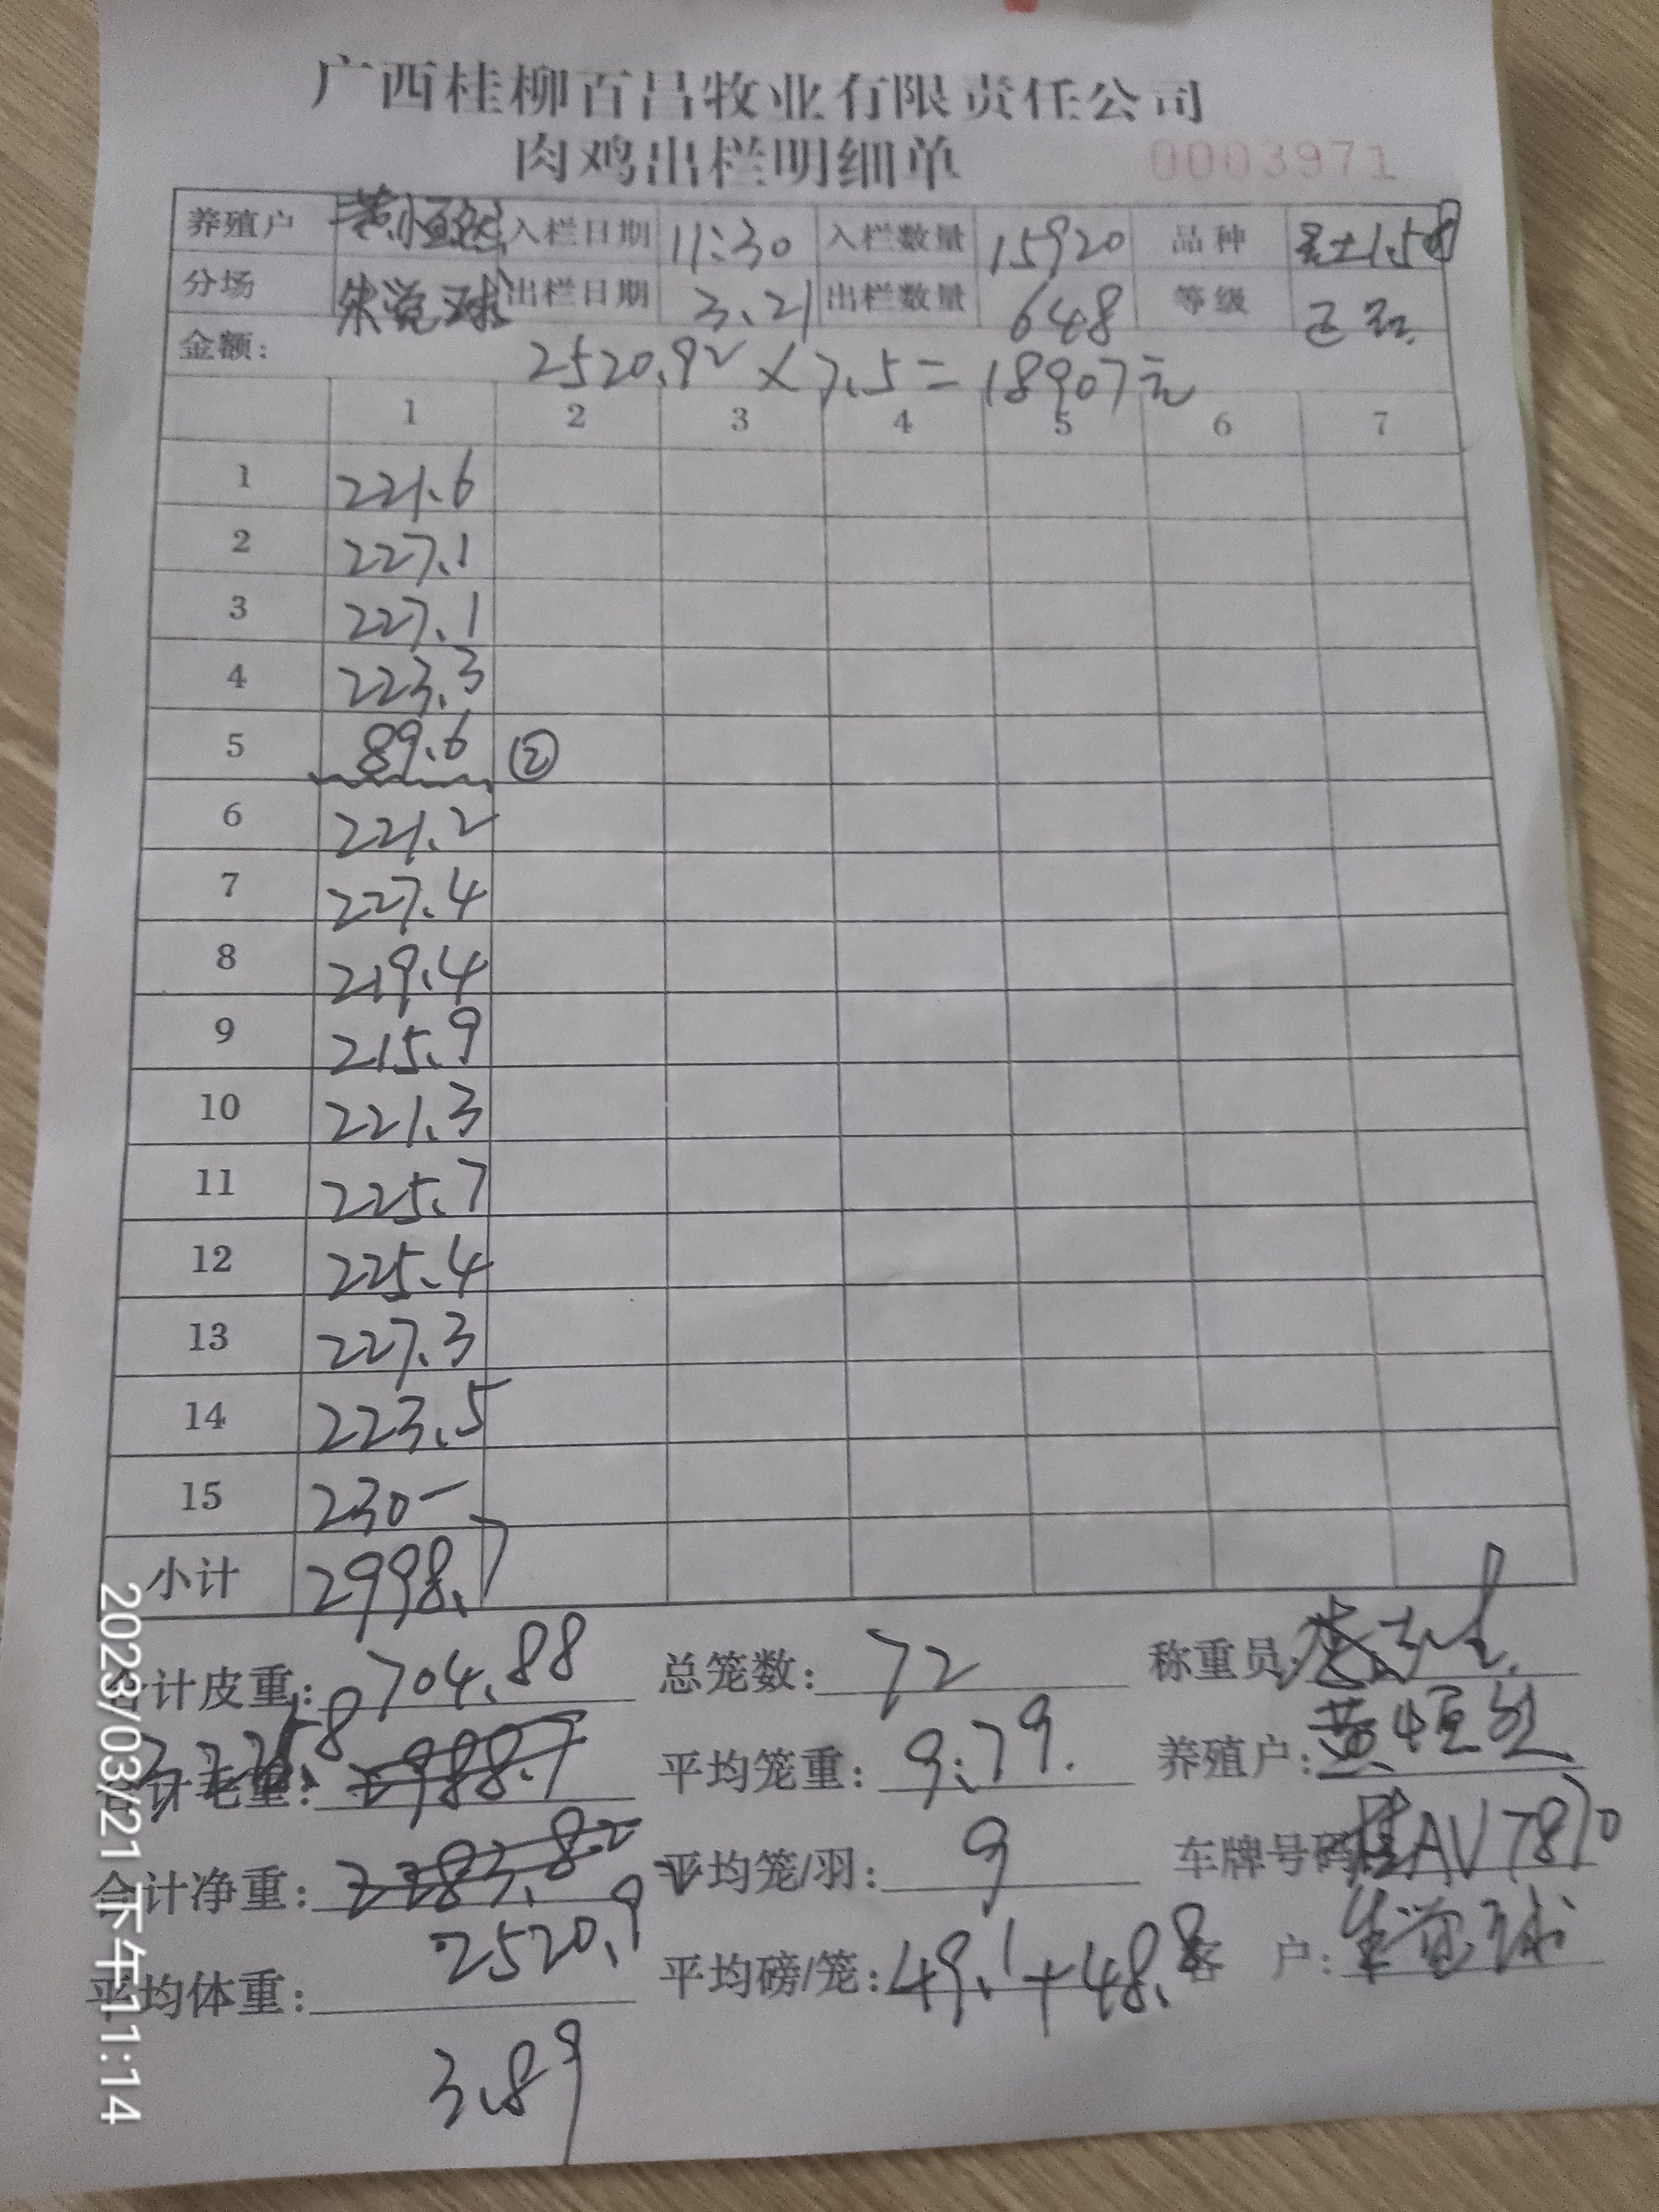 广西桂柳百昌牧业有限责任公司
肉鸡出栏明细单 0003971
养殖户 黄恒 入栏日期 11:30 入栏数量 15920 品种
分场 朱觉球 出栏日期 3.21 出栏数量 648 等级 正
金额: 2520.92 × 7.5 = 18907元
1 2 3 4 5 6 7
1 221.6
2 227.1
3 227.1
4 223.3
5 89.6 ②
6 221.2
7 227.4
8 219.4
9 215.9
10 221.3
11 225.7
12 225.4
13 227.3
14 223.5
15 230-
小计 2998.7
合计皮重: 704.88 总笼数: 72 称重员:
合计毛重: 2988.7 平均笼重: 9.79. 养殖户: 黄恒
合计净重: 2283.82 平均笼/羽: 9 车牌号码 桂AV7870
2520.9
平均体重: 平均磅/笼: 49.1+48.8 客 户: 朱觉球
3.89
2023/03/21 下午11:14